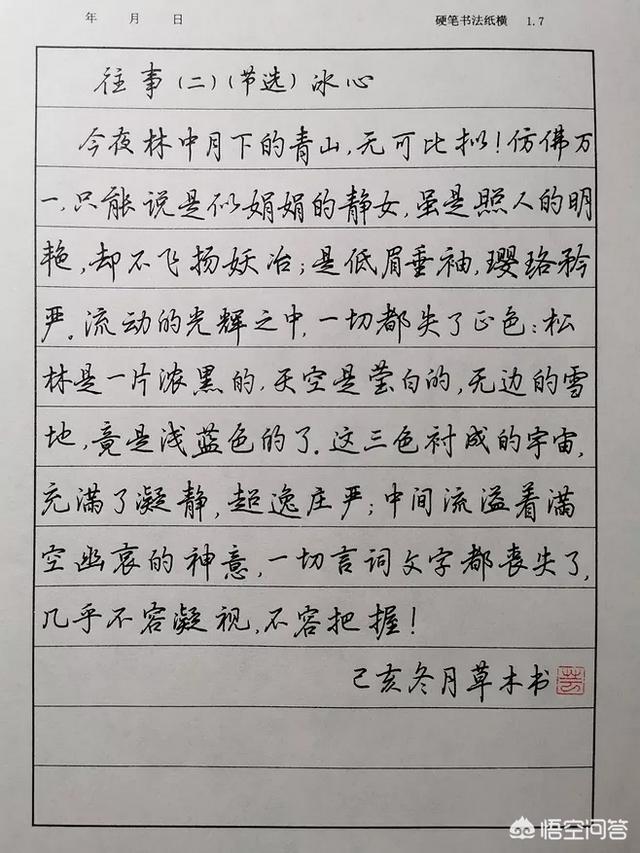 年 月 日 硬笔书法纸横 1.7
往事(二)(节选)冰心
今夜林中月下的青山,无可比拟!仿佛万
一,只能说是似娟娟的静女,虽是照人的明
艳,却不飞扬妖冶;是低眉垂袖,璎珞矜
严。流动的光辉之中,一切都失了正色:松
林是一片浓黑的,天空是莹白的,无边的雪
地,竟是浅蓝色的了。这三色衬成的宇宙,
充满了凝静,超逸庄严;中间流溢着满
空幽哀的神意,一切言词文字都丧失了,
几乎不容凝视,不容把握!
己亥冬月草木书
悟空问答